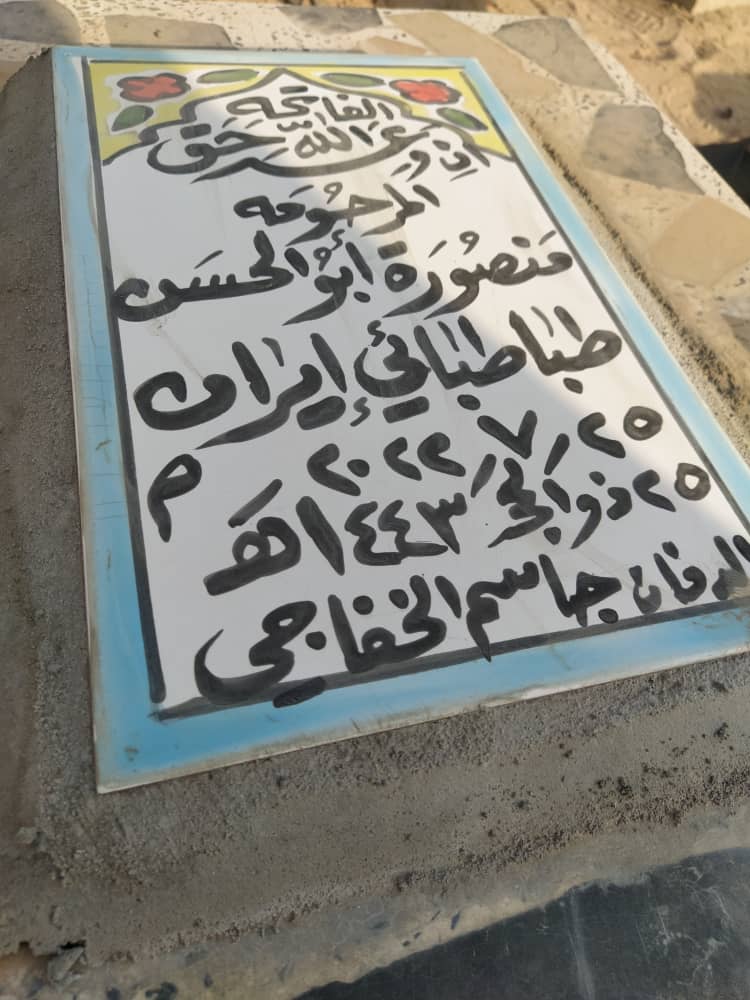 الفاتحة
وعد الله حق
إن
المرحومه
مَنصُورَة أبُو الحسَن
طباطبائي إيران
٢٥ / ٧ / ٢٠٢٢ م
٢٥ ذو الحجة / ١٤٤٣ هـ
الدفان جاسم الخفاجي